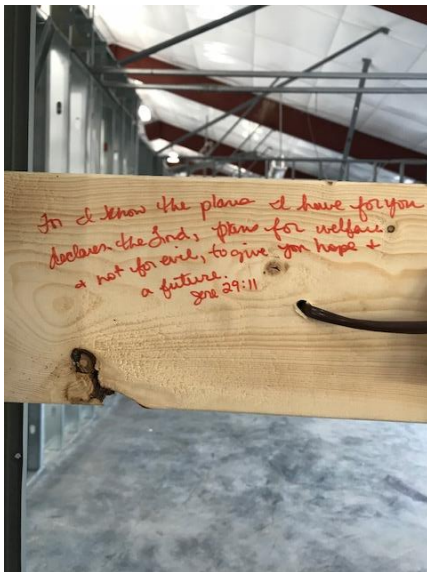 For I know the plans I have for you
declares the Lord, plans for welfare
& not for evil, to give you hope &
a future.
Jere 29:11